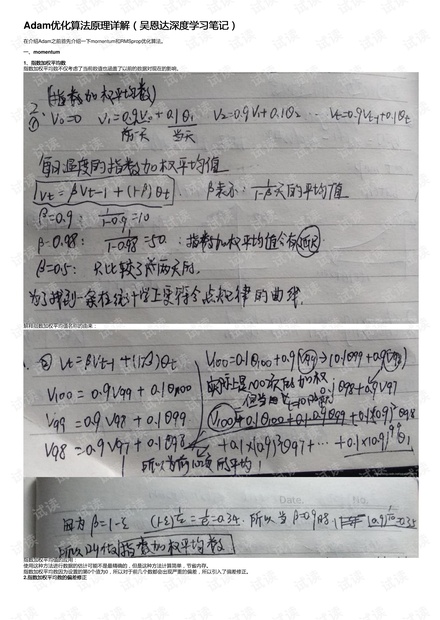 Adam优化算法原理详解（吴恩达深度学习笔记）
在介绍Adam之前首先介绍一下momentum和RMSprop优化算法。
一、momentum
1、指数加权平均数
指数加权平均数不仅考虑了当前数值也涵盖了以前的数据对现在的影响。
(指数加权平均数)
① V₀=0 V₁=0.9V₀+0.1θ₁ V₂=0.9V₁+0.1θ₂ ... Vt=0.9Vt-1+0.1θt
前一天 当天
每日温度的指数加权平均值
Vt = βVt-1 + (1-β)θt β表示: 1/(1-β)天的平均值
β=0.9: 1/(1-0.9)=10
β=0.98: 1/(1-0.98)=50 : 指数加权平均值会有延迟
β=0.5: 只比较了前两天的.
为了找到一条在统计学上更符合点规律的曲线.
解释指数加权平均值名称的由来：
② Vt=βVt-1+(1-β)θt V100=0.1θ100+0.9
V100 = 0.9V99 + 0.1θ100
V99 = 0.9V98 + 0.1θ99
V98 = 0.9V97 + 0.1θ98
+0.1×(0.9)³θ97+...+0.1×(0.9)⁹⁹θ1
的平均
Date. No.
因为 β=1-ε 所以当 β=0.98
所以叫做指数加权平均数
指数加权平均值的应用：
使用这种方法进行数据的估计可能不是最精确的，但是这种方法计算简单，节省内存。
指数加权平均数因为设置的第0个值为0，所以对于前几个数都会出现严重的偏差，所以引入了偏差修正。
2.指数加权平均数的偏差修正